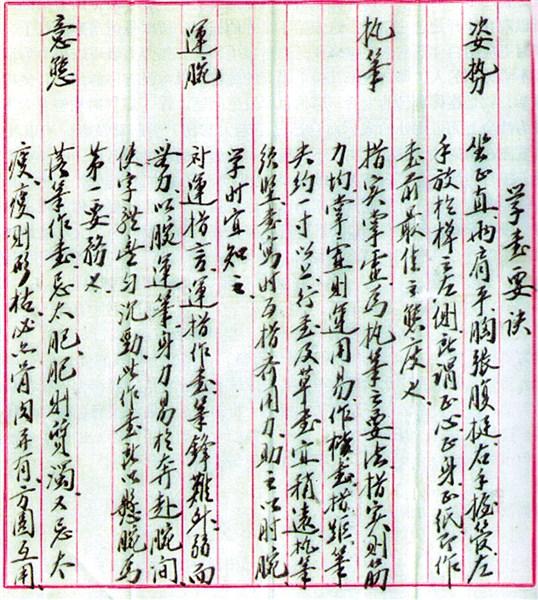 学书要诀
姿势 坐正真两肩平胸张腹挺右手握管左
手放於桌之左侧所谓正心正身正纸即作
书前最佳之态度也
执笔 指实掌虚为执笔之要法指实则筋
力均掌虚则运用易作楷书指距笔
尖约一寸以上行书及草书宜稍远执笔
须竖书写时五指齐用力助之以肘腕
学时宜知之
運腕 对运指言运指作书笔锋难外而
无力以腕运笔身力易於奔赴腕间
使字匀沉劲此作书所以悬腕为
第一要务也
意態 落笔作书忌太肥肥则质濁又忌太
瘦瘦则形枯必骨肉并有方圆互用